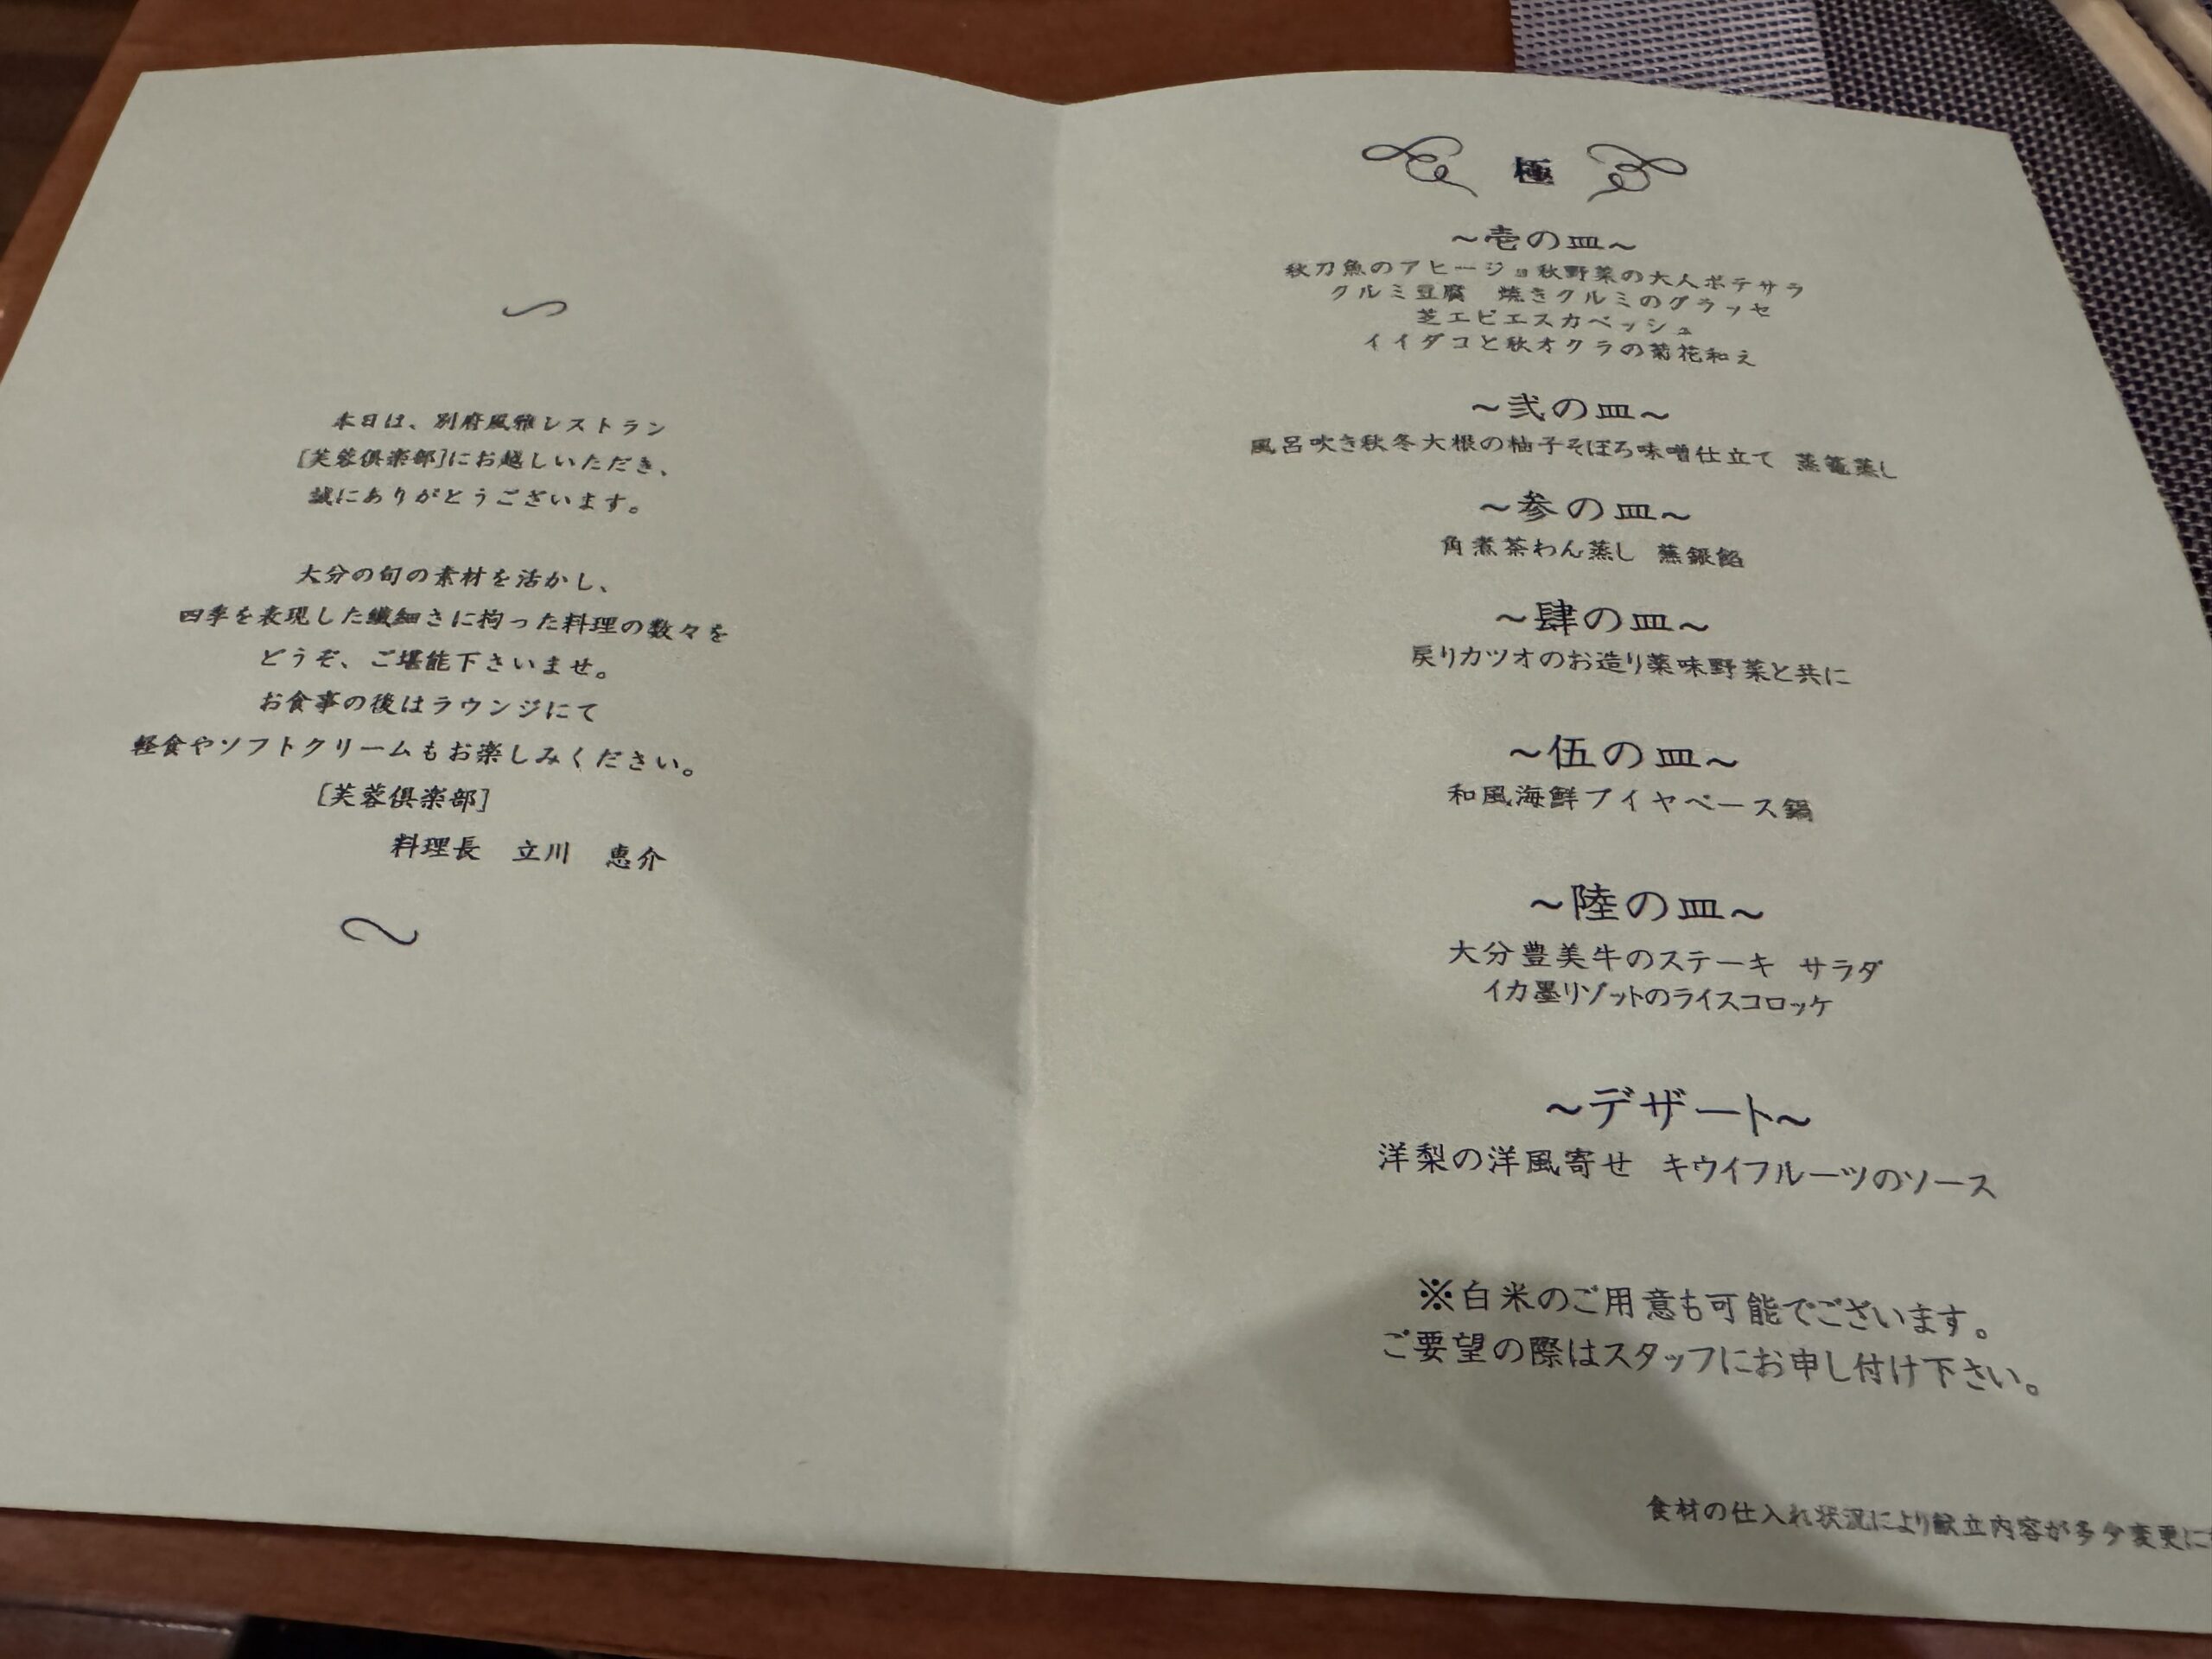 本日は、別府風雅レストラン
[芙蓉倶楽部]にお越しいただき、
誠にありがとうございます。
大分の旬の素材を活かし、
四季を表現した繊細さに拘った料理の数々を
どうぞ、ご堪能下さいませ。
お食事の後はラウンジにて
軽食やソフトクリームもお楽しみください。
[芙蓉倶楽部]
料理長 立川 恵介
極
~壱の皿~
秋刀魚のアヒージョ秋野菜の大人ポテサラ
クルミ豆腐 焼きクルミのグラッセ
芝エビエスカベッシュ
イイダコと秋オクラの菊花和え
~弐の皿~
風呂吹き秋冬大根の柚子そぼろ味噌仕立て 蒸篭蒸し
~参の皿~
角煮茶わん蒸し 蕪銀餡
~肆の皿~
戻りカツオのお造り薬味野菜と共に
~伍の皿~
和風海鮮ブイヤベース鍋
~陸の皿~
大分豊美牛のステーキ サラダ
イカ墨リゾットのライスコロッケ
~デザート~
洋梨の洋風寄せ キウイフルーツのソース
※白米のご用意も可能でございます。
ご要望の際はスタッフにお申し付け下さい。
食材の仕入れ状況により献立内容が多少変更に